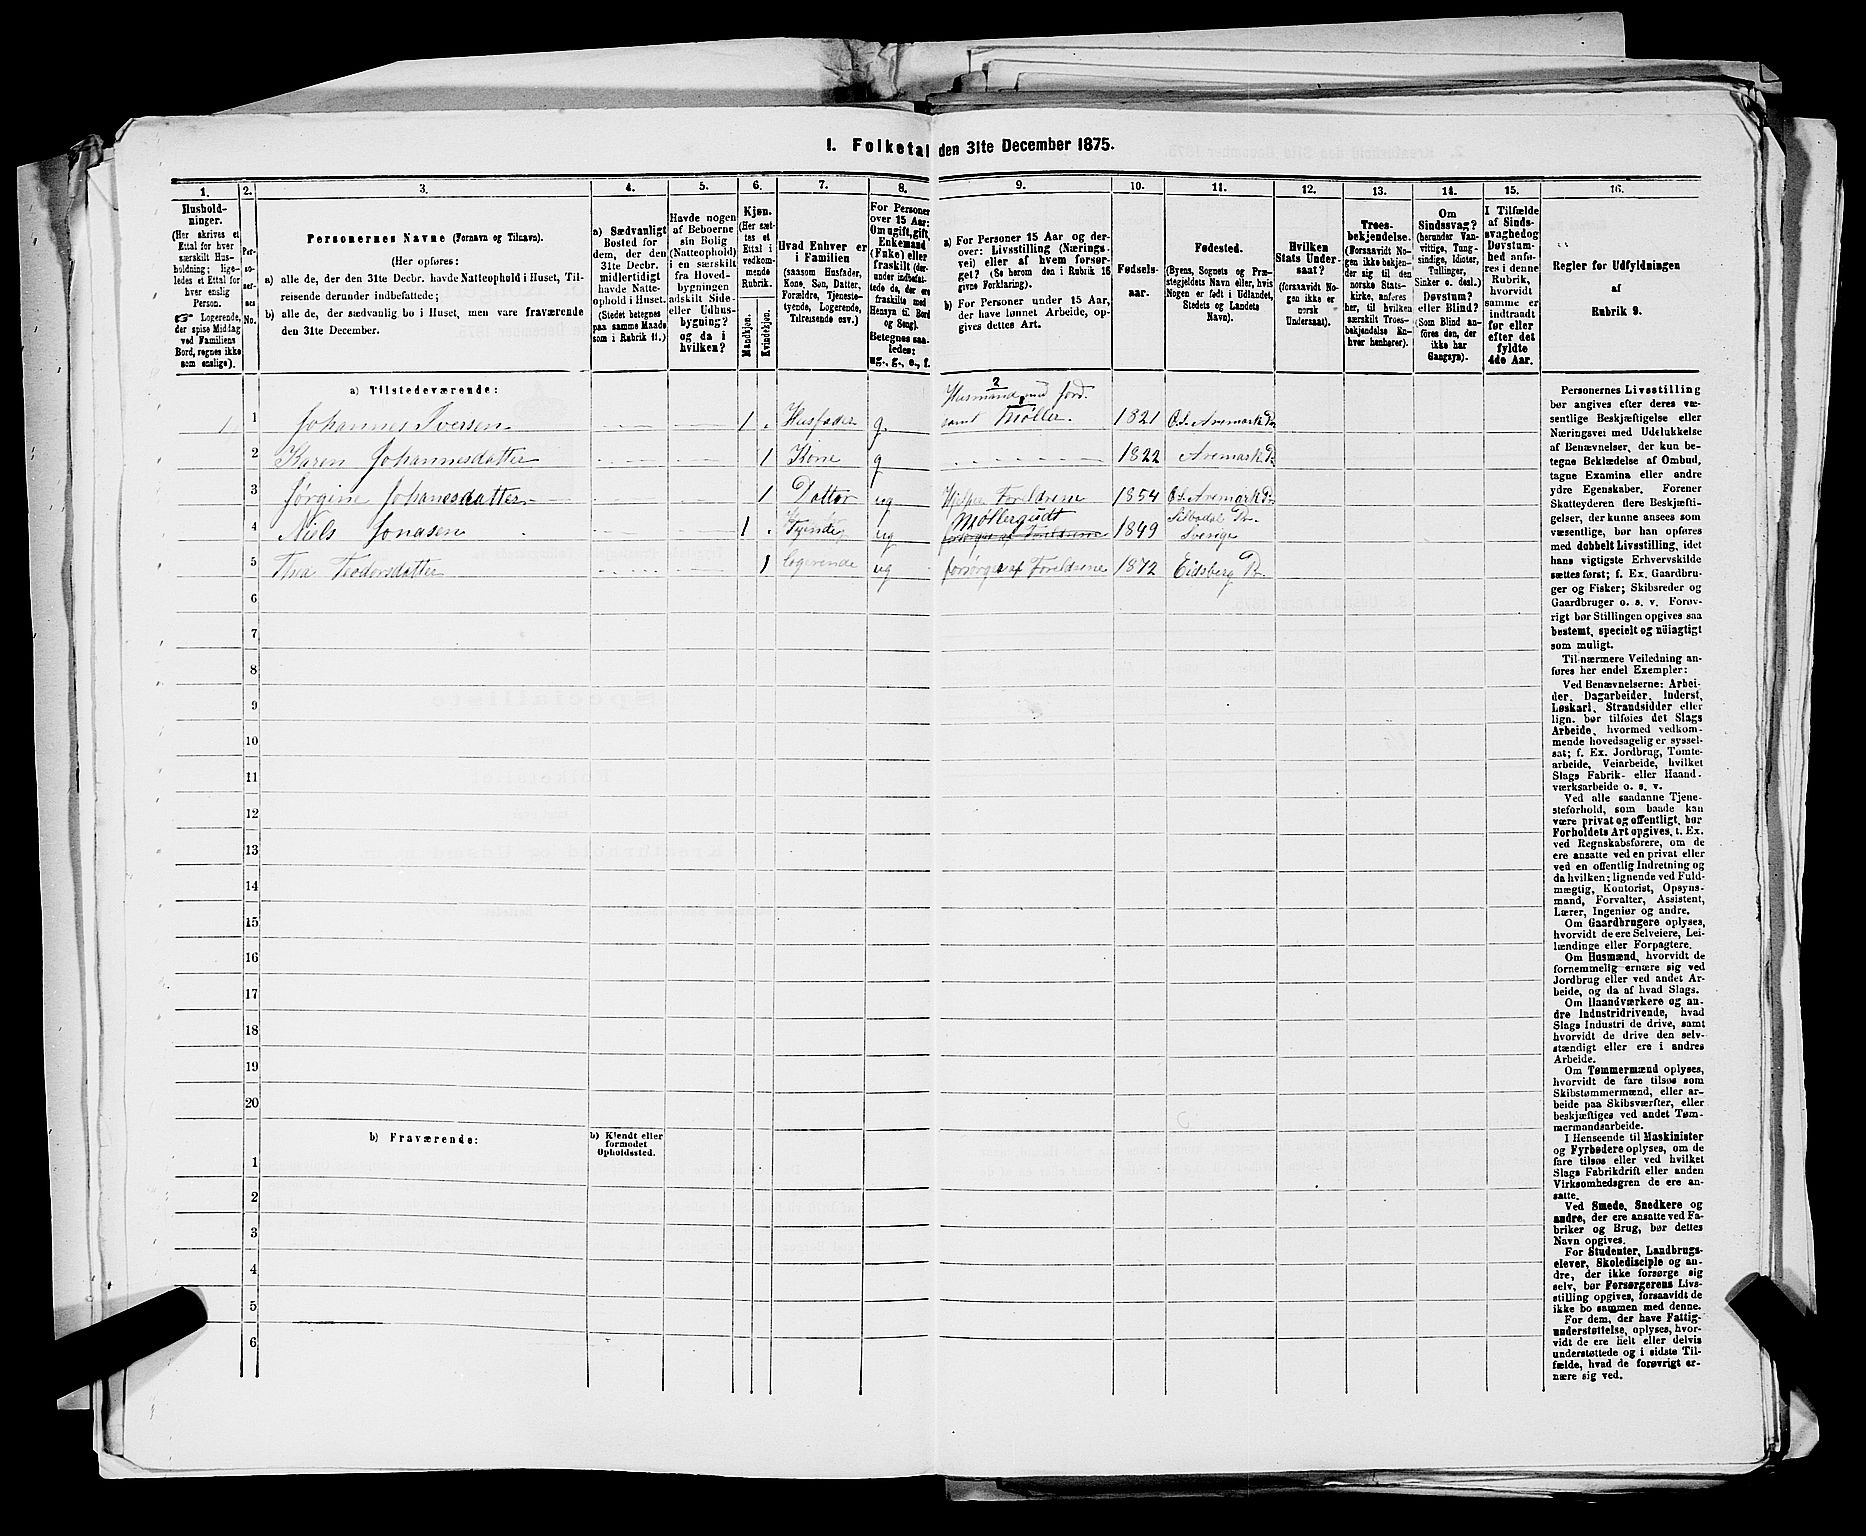 1. Folketal den 31te December 1875.
1. 2. 3. 4. 5. 6. 7. 8. 9. 10. 11. 12. 13. 14. 15. 16.
Husholdninger.
(Her skrives et
Ettal for hver
særskilt Husholdning;
ligeledes et Ettal for
hver enslig
Person.
☞ Logerende,
der spise Middag
ved Familiens
Bord, regnes ikke
som enslige).
Personernes No.
Personernes Navne (Fornavn og Tilnavn).
(Her opføres:
a) alle de, der den 31te Decbr. havde Natteophold i Huset, Tilreisende
derunder indbefattede;
b) alle de, der sædvanlig bo i Huset, men vare fraværende
den 31te December.
a) Sædvanligt
Bosted for
dem, der den
31te Decbr.
midlertidigt
havde Natteophold
i Huset.
(Stedet betegnes
paa samme Maade
som i Rubrik 11.)
Havde nogen
af Beboerne
sin Bolig
(Natteophold)
i en særskilt
fra Hovedbygningen
adskilt Side-
eller Udhusbygning?
og da i
hvilken?
Kjøn.
(Her sættes
et
Ettal i
vedkommende
Rubrik.
Mandkjøn.
Kvindekjøn.
Hvad Enhver er
i Familien
(saasom Husfader,
Kone, Søn, Datter,
Forældre, Tjenestetyende,
Logerende,
Tilreisende osv.)
For Personer
over 15 Aar:
Om ugift, gift,
Enkemand
(Enke) eller
fraskilt (derunder
indbefattede
de, der ere
fraskilte med
Hensyn til Bord
og Seng).
Betegnes saaledes:
ug., g., e., f.
a) For Personer 15 Aar og derover:
Livsstilling (Næringsvei)
eller af hvem forsørget?
(Se herom den i Rubrik 16
givne Forklaring).
b) For Personer under 15 Aar,
der have lønnet Arbeide, opgives
dettes Art.
Fødselsaar.
Fødested.
(Byens, Sognets og Præstegjeldets
Navn eller, hvis
Nogen er født i Udlandet,
Stedets og Landets
Navn).
Hvilken
Stats Undersaat?
(forsaavidt Nogen
ikke er
norsk
Undersaat).
Troesbekjendelse.
(Forsaavidt Nogen
ikke bekjender
sig til den
norske Statskirke,
anføres
her, til hvilken
særskilt Troesbekjendelse
Enhver
henhører).
Om
Sindssvag?
(herunder Vanvittige,
Tungsindige,
Idioter,
Tullinger,
Sinker o. desl.)
Døvstum?
eller Blind?
(Som Blind anføres
den, der
ikke har
Gangsyn).
I Tilfælde
af Sindssvaghed
og
Døvstumhed
anføres
i denne
Rubrik,
hvorvidt
samme er
indtraadt
før eller
efter det
fyldte
4de Aar.
Regler for Udfyldningen
af
Rubrik 9.
a) Tilstedeværende:
1 1 Johannes Iversen 1 Husfader g. Husmand med Jord. 2
samt Møller. 1821 Ø.S. Aremark Pr
2 Karen Johannesdatter 1 Kone g 1822 Aremark Pr
3 Jørgine Johanesdatter 1 Datter ug Hjelper Foreldrene 1854 Ø.S. Aremark Pr
4 Niels Jonasen 1 Tyende ug Møllergudt
forsorges af Foreldrene 1849 Silbodal Pr.
Sverige
5 Teodorsdatter 1 logerende ug forsorges af Foreldrene 1872 Eidsberg Pr
6
7
8
9
10
11
12
13
14
15
16
17
18
19
20
b) Fraværende:
b) Kjendt eller
formodet
Opholdssted.
1
2
3
4
5
6
Personernes Livsstilling
bør angives efter deres væsentlige
Beskjæftigelse eller
Næringsvei med Udelukkelse
af Benævnelser, der kun betegne
Beklædelse af Ombud,
tagne Examina eller andre
ydre Egenskaber. Forener
Skatteyderen flere Beskjæftigelser,
der kunne ansees som
væsentlige, bør han opføres
med dobbelt Livsstilling, idet
hans vigtigste Erhvervskilde
sættes først; f. Ex. Gaardbruger
og Fisker; Skibsreder og
Gaardbruger o. s. v. Forøvrigt
bør Stillingen opgives saa
bestemt, specielt og nøiagtigt
som muligt.
Til nærmere Veiledning anføres
her endel Exempler:
Ved Benævnelserne: Arbeider,
Dagarbeider, Inderst,
Løskarl, Strandsidder eller
lign. bør tilføies det Slags
Arbeide, hvormed vedkommende
hovedsagelig er sysselsat;
f. Ex. Jordbrug, Tomtearbeide,
Veiarbeide, hvilket
Slags Fabrik- eller Haandværksarbeide
o. s. v.
Ved alle saadanne Tjenesteforhold,
som baade kan
være privat og offentligt, bør
Forholdets Art opgives, t. Ex.
ved Regnskabsførere, om de
ere ansatte ved en privat eller
ved en offentlig Indretning og
da hvilken; lignende ved Fuldmægtig,
Kontorist, Opsynsmand,
Forvalter, Assistent,
Lærer, Ingeniør og andre.
Om Gaardbrugere oplyses,
hvorvidt de ere Selveiere, Leilændinge
eller Forpagtere.
Om Husmænd, hvorvidt de
fornemmelig ernære sig ved
Jordbrug eller ved andet Arbeide,
og da af hvad Slags.
Om Haandværkere og andre
Industridrivende, hvad
Slags Industri de drive, samt
hvorvidt de drive den selvstændigt
eller ere i andres
Arbeide.
Om Tømmermænd oplyses,
hvorvidt de fare tilsøs som
Skibstømmermænd, eller arbeide
paa Skibsværfter, eller
beskjæftiges ved andet Tømmermandsarbeide.
I Henseende til Maskinister
og Fyrbødere oplyses, om de
fare tilsøs eller ved hvilket
Slags Fabrikdrift eller anden
Virksomhedsgren de ere ansatte.
Ved Smede, Snedkere og
andre, der ere ansatte ved Fabriker
og Brug, bør dettes
Navn opgives.
For Studenter, Landbrugselever,
Skoledisciple og andre,
der ikke forsørge sig
selv, bør Forsørgerens Livsstilling
opgives, forsaavidt de
ikke bo sammen med denne.
For dem, der have Fattigunderstøttelse,
oplyses, hvorvidt
de ere helt eller delvis
understøttede og i sidste Tilfælde,
hvad de forøvrigt ernære
sig ved.